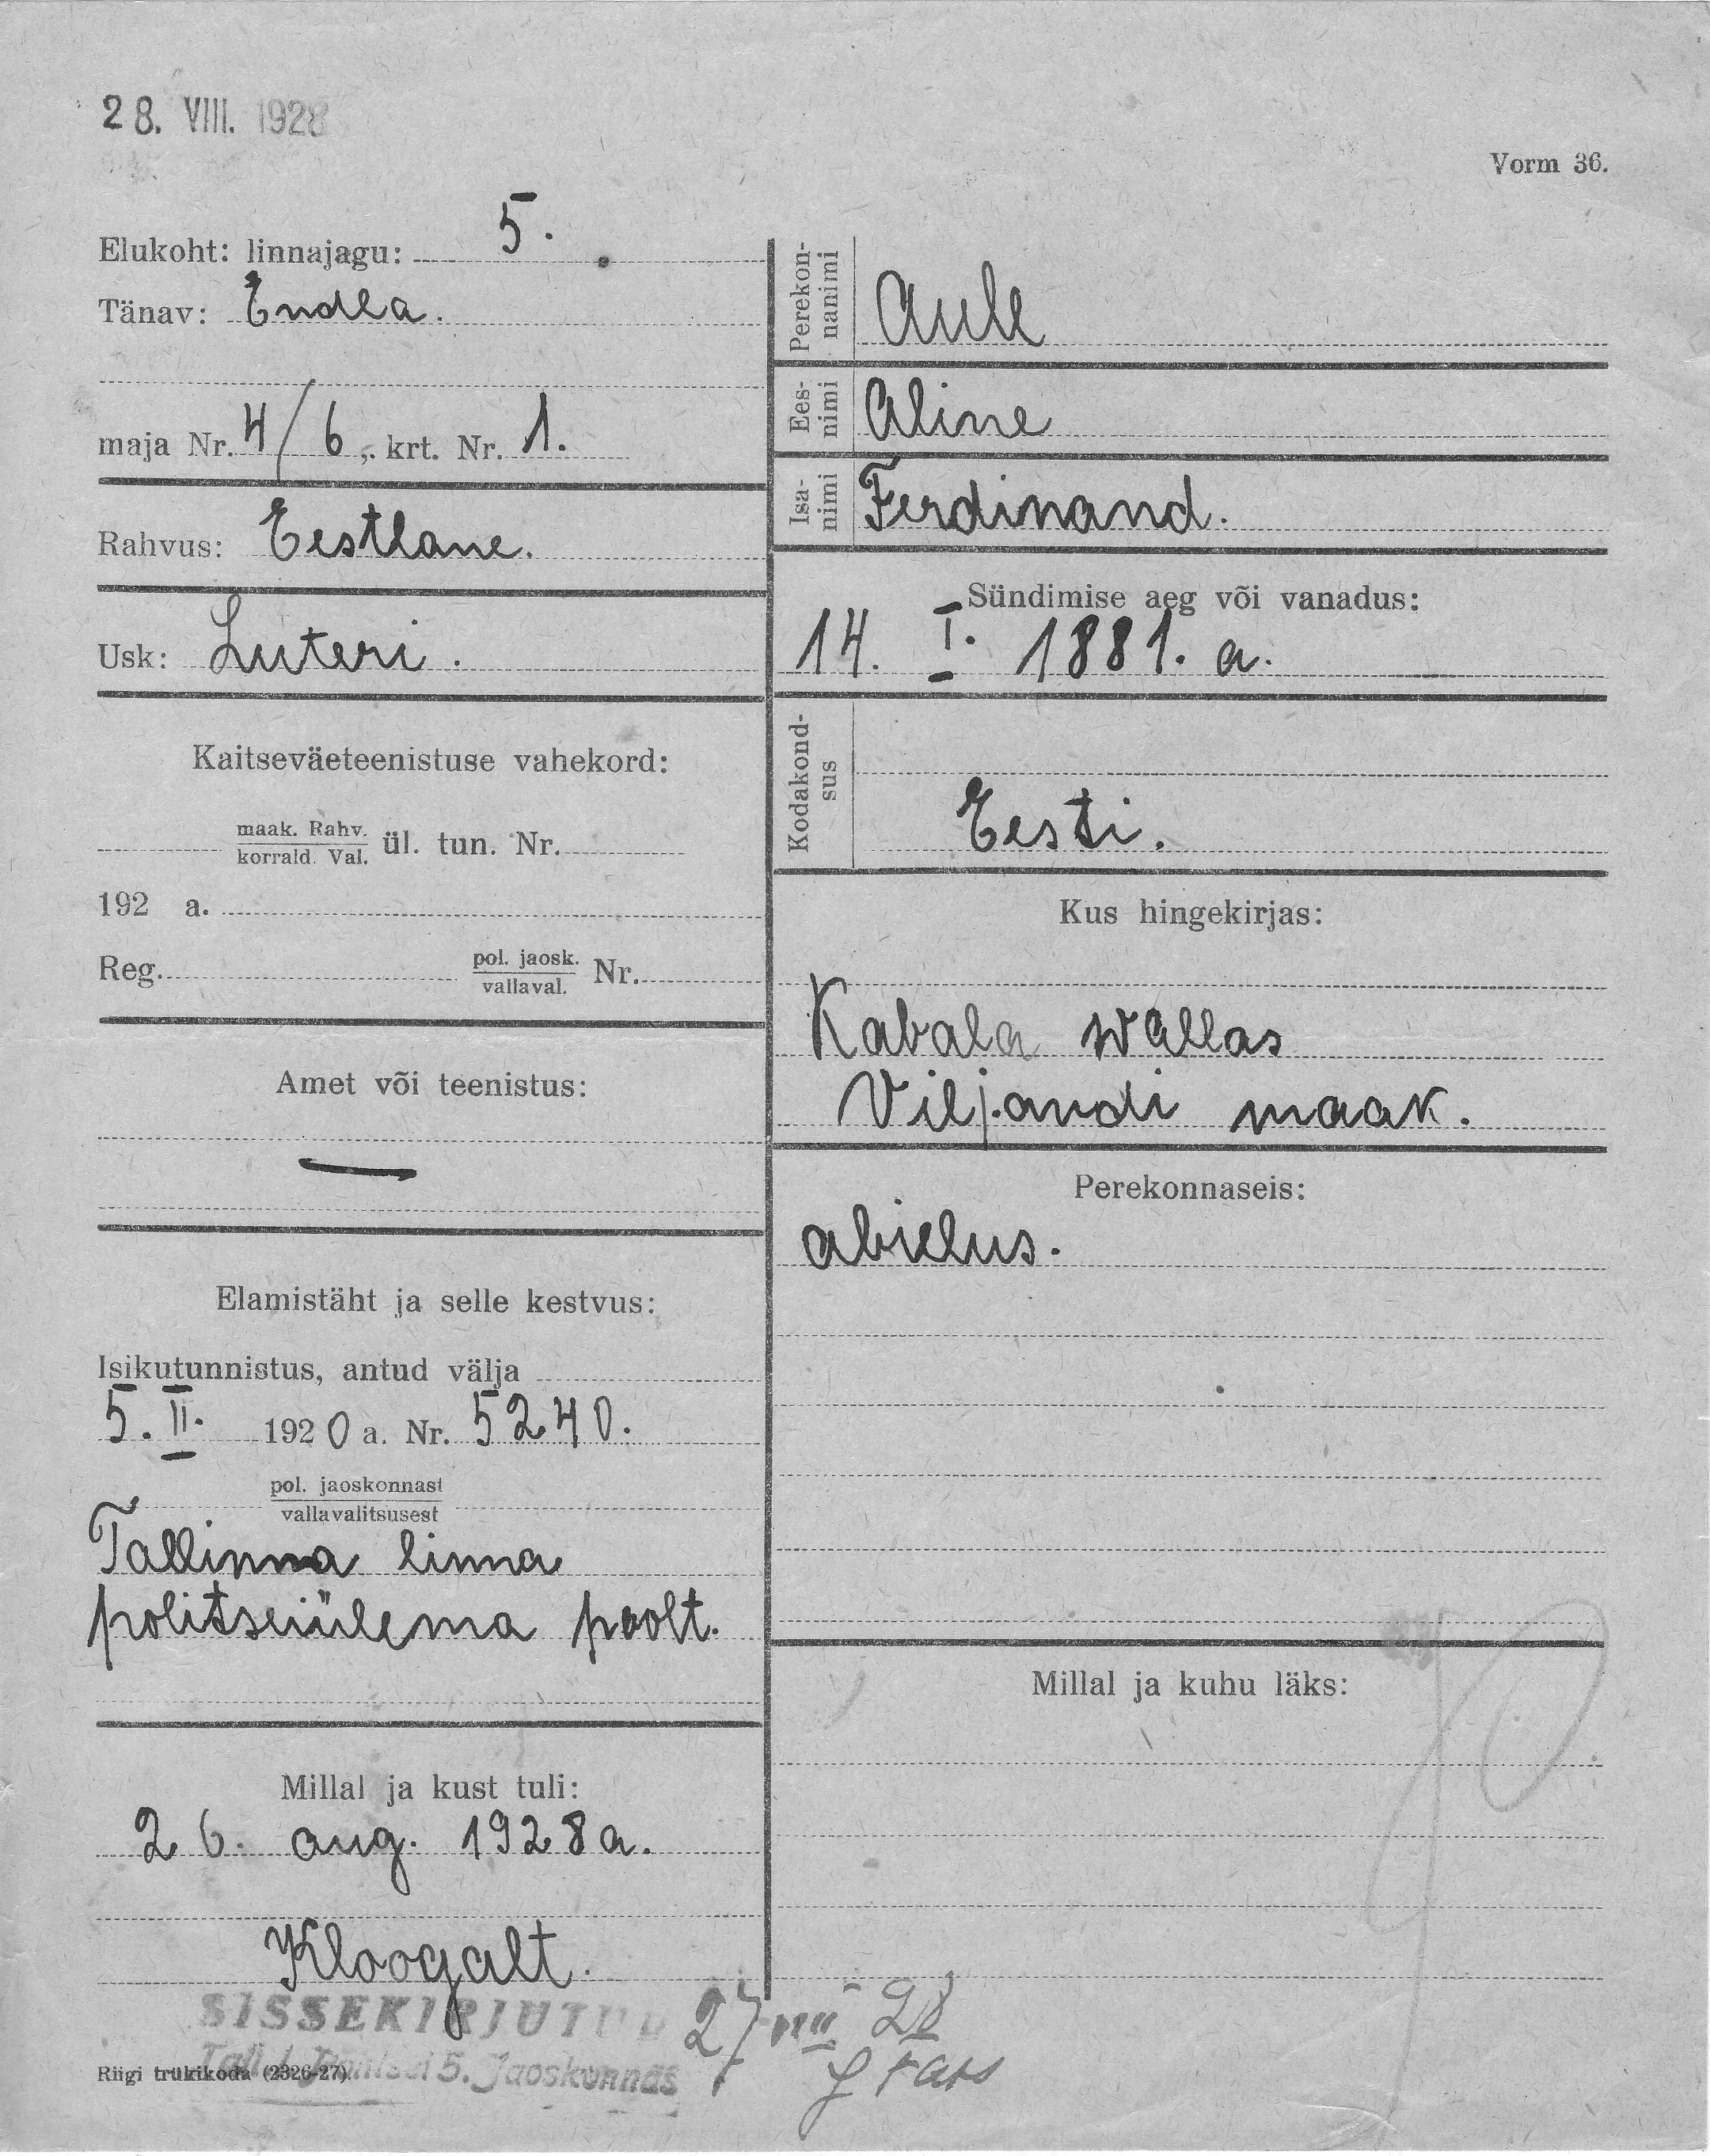 28. VIII. 1928
Vorm 36.
Elukoht: linnajagu: 5.
Tänav: Endla.
maja Nr. 4/6, krt. Nr. 1.
Rahvus: Eestlane.
Usk: Luteri.
Kaitseväeteenistuse vahekord:
maak. Rahv.
korrald. Val.
ül. tun. Nr.
192 a.
Reg. pol. jaosk.
vallaval.
Nr.
Amet või teenistus:
—
Elamistäht ja selle kestvus:
Isikutunnistus, antud välja
5. II. 1920 a. Nr. 5240.
pol. jaoskonnast
vallavalitsusest
Tallinna linna
politseiülema poolt.
Millal ja kust tuli:
26. aug. 1928 a.
Kloogalt.
Perekon-
nanimi
Aule
Ees-
nimi
Aline
Isa-
nimi
Ferdinand.
Sündimise aeg või vanadus:
14. I. 1881. a.
Kodakond-
sus
Eesti.
Kus hingekirjas:
Kabala wallas
Viljandi maak.
Perekonnaseis:
abielus.
Millal ja kuhu läks:
SISSEKIRJUTUD
27 VIII 28
5. Jaoskonnas
Riigi trükikoda (2326-27)